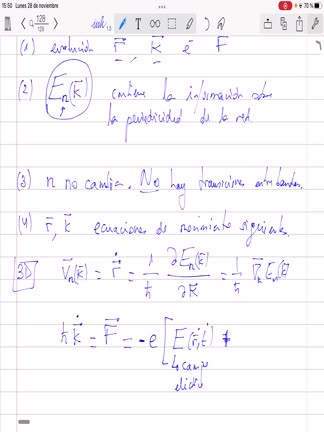 15:50 Lunes 28 de noviembre 70 %
128
129
(1) evolución r⃗, k⃗ e r⃗
(2) Eₙ(k⃗) contiene la información sobre
la periodicidad de la red.
(3) n no cambia. No hay transiciones entre bandas.
(4) r⃗, k⃗ ecuaciones de movimiento siguientes.
3D v⃗ₙ(k⃗) = ṙ⃗ = 1/ħ ∂Eₙ(k⃗)/∂k⃗ = 1/ħ ∇⃗ₖ Eₙ(k⃗)
ħ k̇⃗ = F⃗ = -e [E(r⃗,t) +
↳ campo
eléctrico